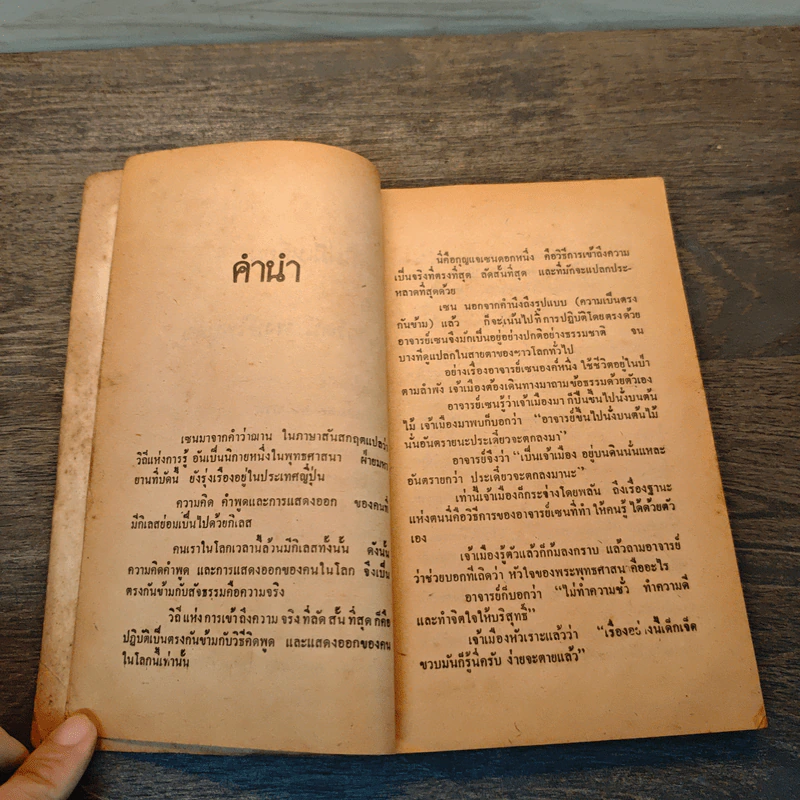 คำนำ
เซนมาจากคำว่าฌาน ในภาษาสันสกฤตแปลว่า
วิถีแห่งการรู้ อันเป็นนิกายหนึ่งในพุทธศาสนา ฝ่ายมหา
ยานที่บัดนี้ ยังรุ่งเรืองอยู่ในประเทศญี่ปุ่น
ความคิด คำพูดและการแสดงออก ของคนที่
มีกิเลสย่อมเป็นไปด้วยกิเลส
คนเราในโลกเวลานี้ล้วนมีกิเลสทั้งนั้น ดังนั้น
ความคิดคำพูด และการแสดงออกของคนในโลก จึงเป็น
ตรงกันข้ามกับสัจธรรมคือความจริง
วิถีแห่งการเข้าถึงความจริงที่ลัดสั้นที่สุด ก็คือ
ปฏิบัติเป็นตรงกันข้ามกับวิธีคิดพูด และแสดงออกของคน
ในโลกนี้เท่านั้น
นี่คือกุญแจเซนดอกหนึ่ง คือวิธีการเข้าถึงความ
เป็นจริงที่ตรงที่สุด ลัดสั้นที่สุด และที่มักจะแปลกประ-
หลาดที่สุดด้วย
เซน นอกจากคำนึงถึงรูปแบบ (ความเป็นตรง
กันข้าม) แล้ว ก็จะเน้นไปที่การปฏิบัติโดยตรงด้วย
อาจารย์เซนจึงมักเป็นอยู่อย่างปกติอย่างธรรมชาติ จน
บางทีดูแปลกในสายตาของชาวโลกทั่วไป
อย่างเรื่องอาจารย์เซนองค์หนึ่ง ใช้ชีวิตอยู่ในป่า
ตามลำพัง เจ้าเมืองต้องเดินทางมาถามข้อธรรมด้วยตัวเอง
อาจารย์เซนรู้ว่าเจ้าเมืองมา ก็ปีนขึ้นไปนั่งบนต้น
ไม้ เจ้าเมืองมาพบก็บอกว่า “อาจารย์ขึ้นไปนั่งบนต้นไม้
นั้นอันตรายนะประเดี๋ยวจะตกลงมา”
อาจารย์จึงว่า “เป็นเจ้าเมือง อยู่บนดินนั้นแหละ
อันตรายกว่า ประเดี๋ยวจะตกลงมานะ”
เท่านี้เจ้าเมืองก็กระจ่างโดยพลัน ถึงเรื่องฐานะ
แห่งตนนี่คือวิธีการของอาจารย์เซนที่ทำ ให้คนรู้ ได้ด้วยตัว
เอง
เจ้าเมืองรู้ตัวแล้วก็ก้มลงกราบ แล้วถามอาจารย์
ว่าช่วยบอกทีเถิดว่า หัวใจของพระพุทธศาสน คืออะไร
อาจารย์ก็บอกว่า “ไม่ทำความชั่ว ทำความดี
และทำจิตใจให้บริสุทธิ์”
เจ้าเมืองหัวเราะแล้วว่า “เรื่องอย่างนี้เด็กเจ็ด
ขวบมันก็รู้นี่ครับ ง่ายจะตายแล้ว”